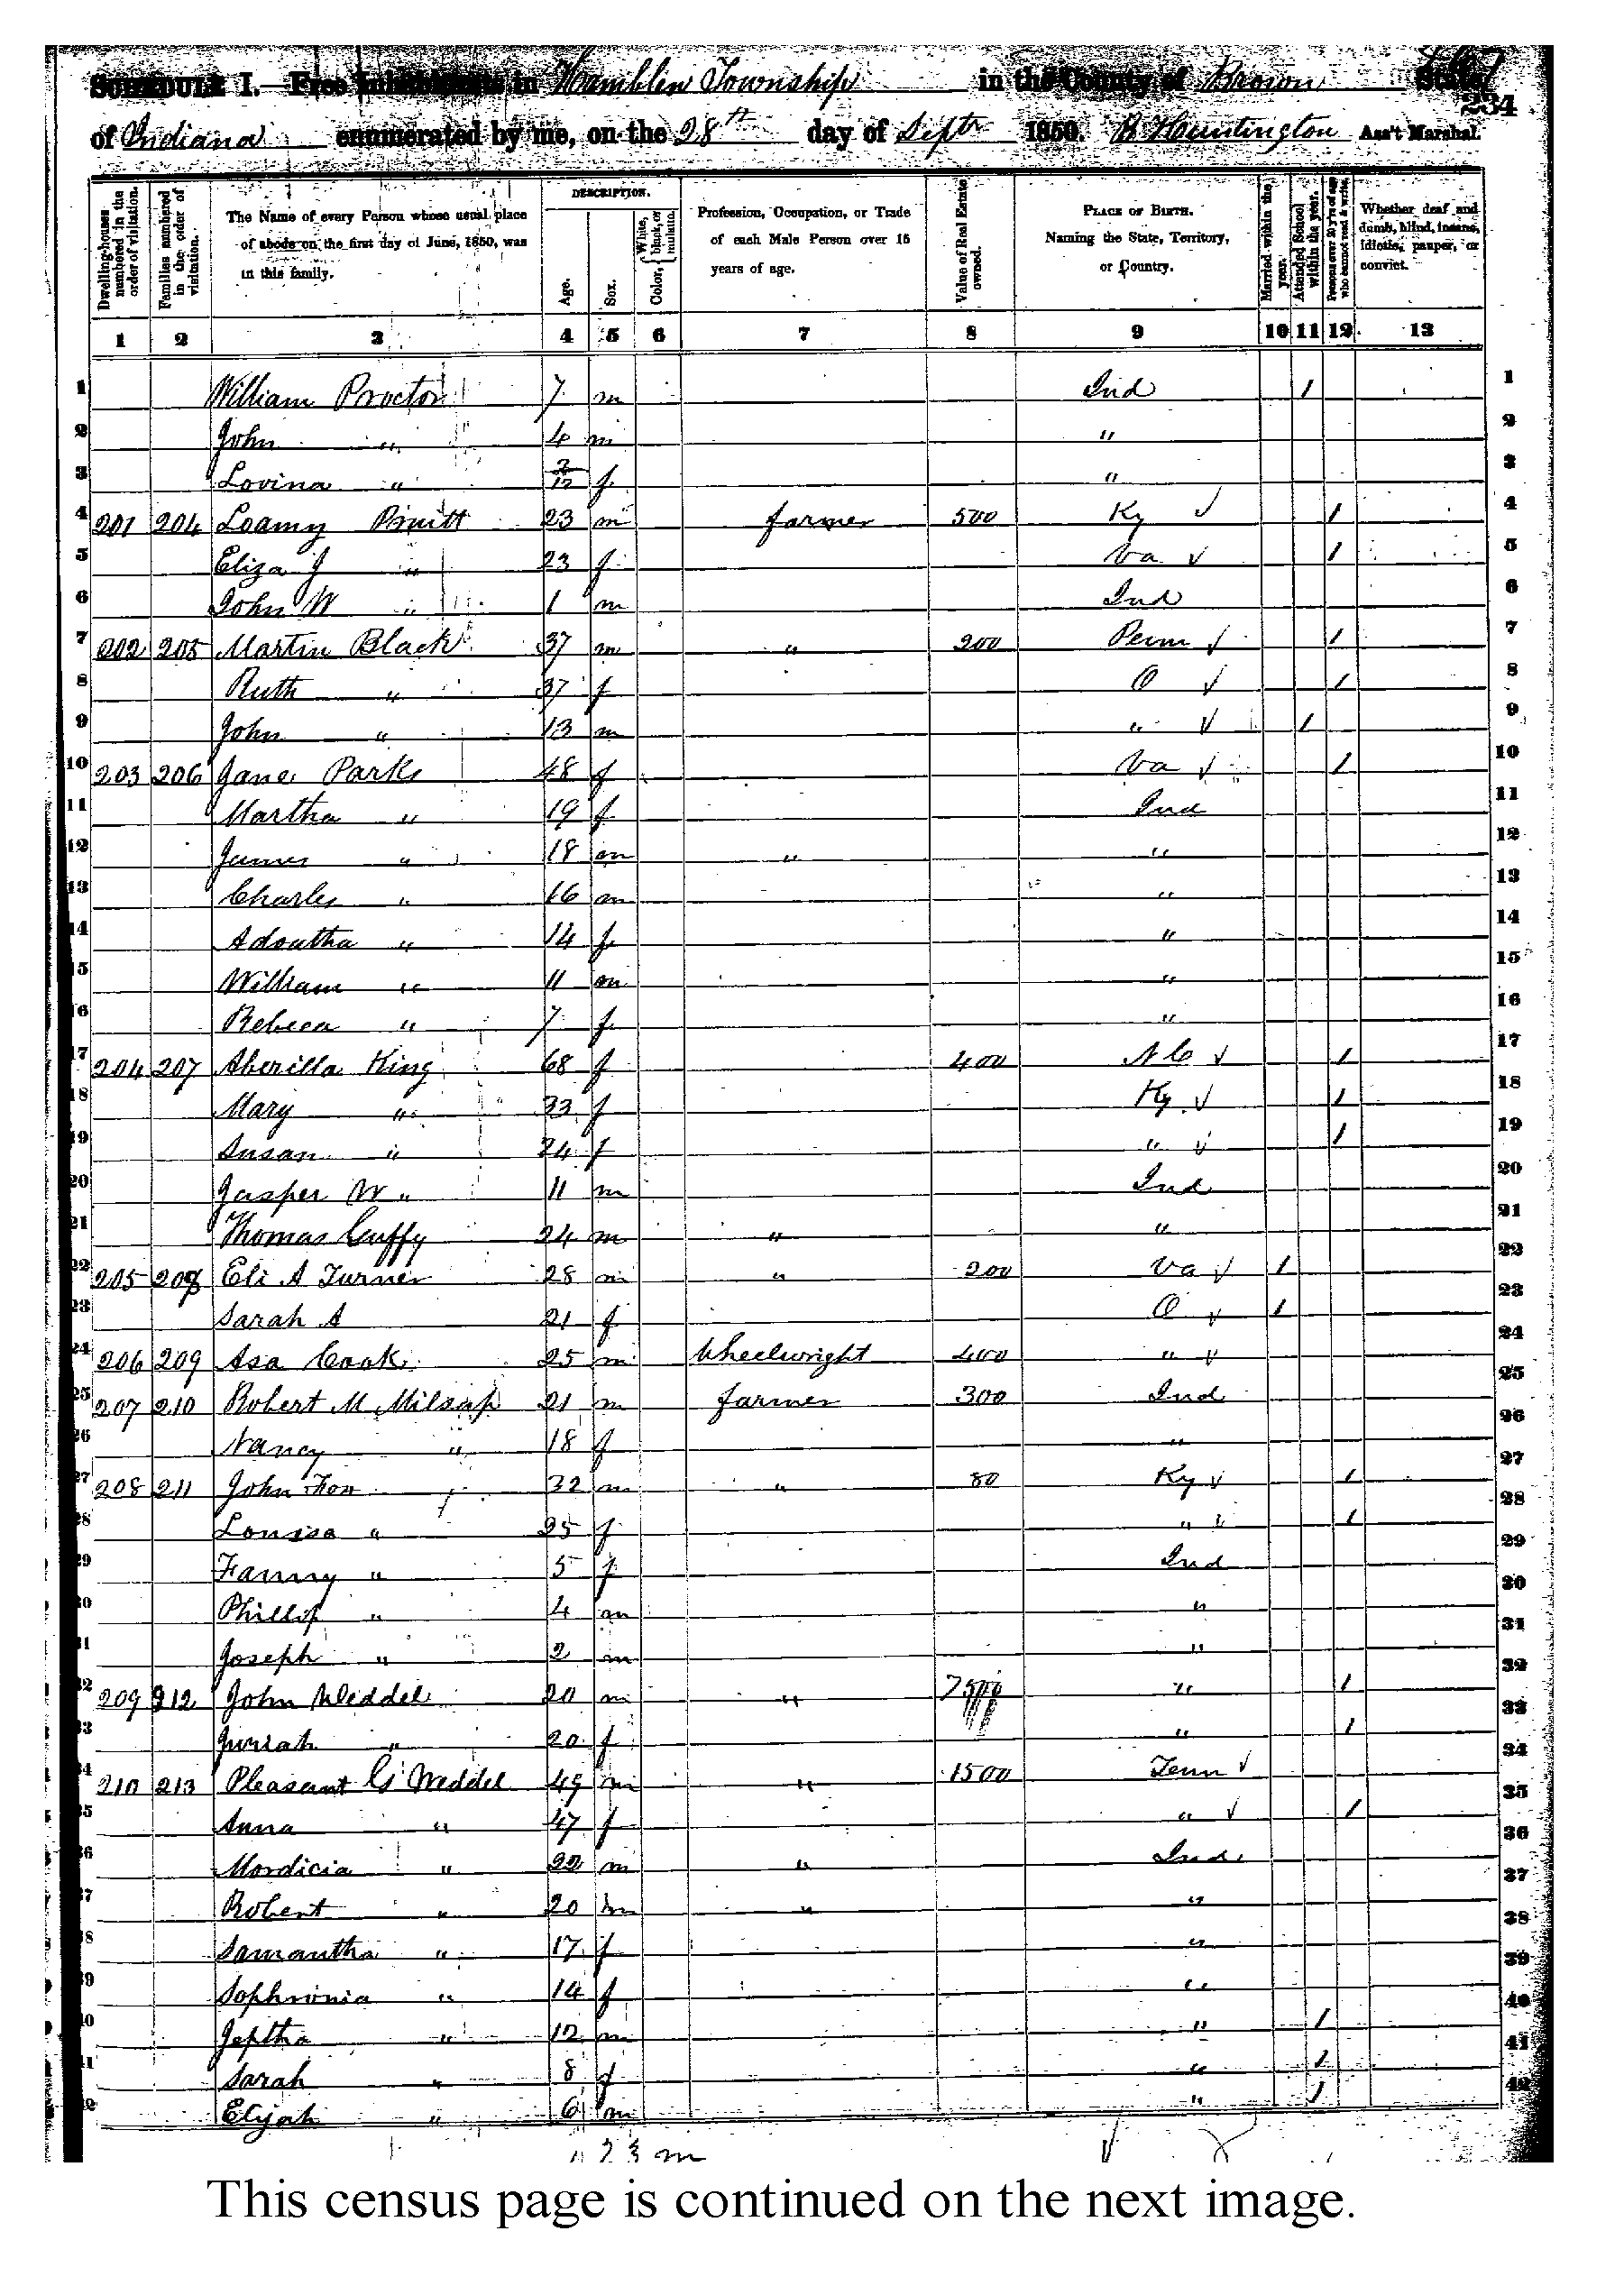 SCHEDULE I.—Free Inhabitants in Hamblen Township in the County of Brown State
234
of Indiana enumerated by me, on the 28th day of Septr 1850. B Huntington Ass't Marshal.
Dwelling-houses numbered in the order of visitation.
Families numbered in the order of visitation.
The Name of every Person whose usual place of abode on the first day of June, 1850, was in this family.
DESCRIPTION.
Age.
Sex.
Color, { White, black, or mulatto.
Profession, Occupation, or Trade of each Male Person over 15 years of age.
Value of Real Estate owned.
PLACE OF BIRTH. Naming the State, Territory, or Country.
Married within the year.
Attended School within the year.
Persons over 20 y'rs of age who cannot read & write.
Whether deaf and dumb, blind, insane, idiotic, pauper, or convict.
1 2 3 4 5 6 7 8 9 10 11 12 13
1 William Proctor 7 m Ind 1 1
2 John " 4 m " 2
3 Lovina " 2/12 f " 3
4 201 204 Loamy Pruitt 23 m farmer 500 Ky √ 1 4
5 Eliza J " 23 f Va √ 1 5
6 John W " 1 m Ind 6
7 202 205 Martin Black 37 m " 200 Penn √ 1 7
8 Ruth " 37 f O √ 1 8
9 John " 13 m " √ 1 9
10 203 206 Jane Parks 48 f Va √ 1 10
11 Martha " 19 f Ind 11
12 James " 18 m " " 12
13 Charles " 16 m " 13
14 Adoutha " 14 f " 14
15 William " 11 m " 15
16 Rebeca " 7 f " 16
17 204 207 Aberilla King 68 f 400 N C √ 1 17
18 Mary " 33 f Ky √ 1 18
19 Susan " 24 f " √ 1 19
20 Jasper W " 11 m Ind 20
21 Thomas Cuffy 24 m " " 21
22 205 208 Eli A Turner 28 m " 200 Va √ 1 22
23 Sarah A 21 f O √ 1 23
24 206 209 Asa Cook 25 m Wheelwright 400 " √ 24
25 207 210 Robert M Milsap 21 m farmer 300 Ind 25
26 Nancy " 18 f " 26
27 208 211 John Fox 32 m " 80 Ky √ 1 27
28 Louisa " 25 f " √ 1 28
29 Fanny " 5 f Ind 29
30 Phillip " 4 m " 30
31 Joseph " 2 m " 31
32 209 212 John Weddel 20 m " " 1 32
33 Juriah " 20 f " 1 33
34 210 213 Pleasant G Weddel 49 m " 1500 Tenn √ 34
35 Anna " 47 f " √ 1 35
36 Mordicia " 22 m " Ind 36
37 Robert " 20 m " " 37
38 Samantha " 17 f " 38
39 Sophronia " 14 f " 39
40 Jeptha " 12 m " 1 40
41 Sarah " 8 f " 1 41
42 Elijah " 6 m " 1 42
23 m
This census page is continued on the next image.